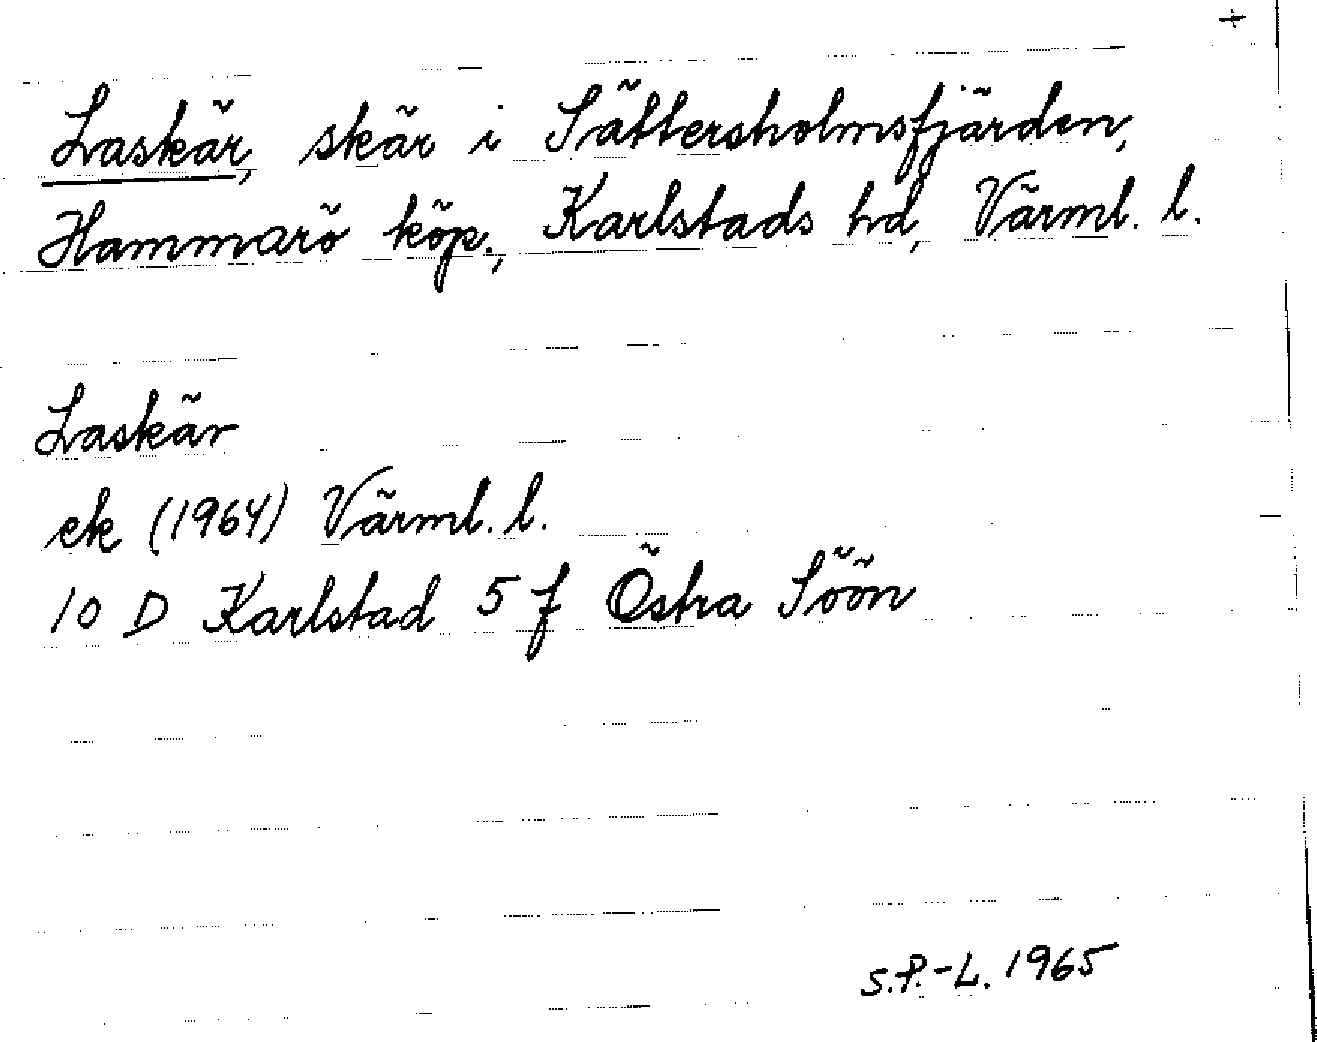 +
Laskär, skär i Sättersholmsfjärden,
Hammarö köp., Karlstads hd, Värml. l.
Laskär
ek (1964) Värml. l.
10 D Karlstad 5 f Östra Söön
S.P.-L. 1965